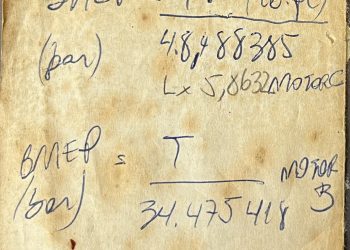 BMEP =
(bar) 48,488385
L x 5,8632 MOTOR C
BMEP = T
(bar) 34.475418 MOTOR B